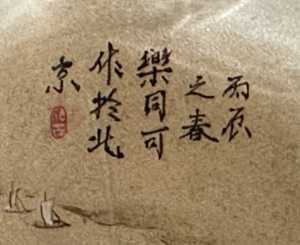 丙辰
之春
樂同可
作於北
京